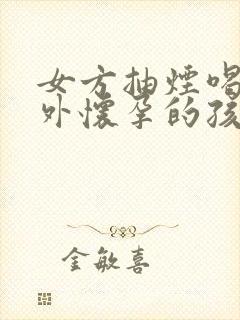 女方抽煙喝
外懷孕的孩
金敏喜